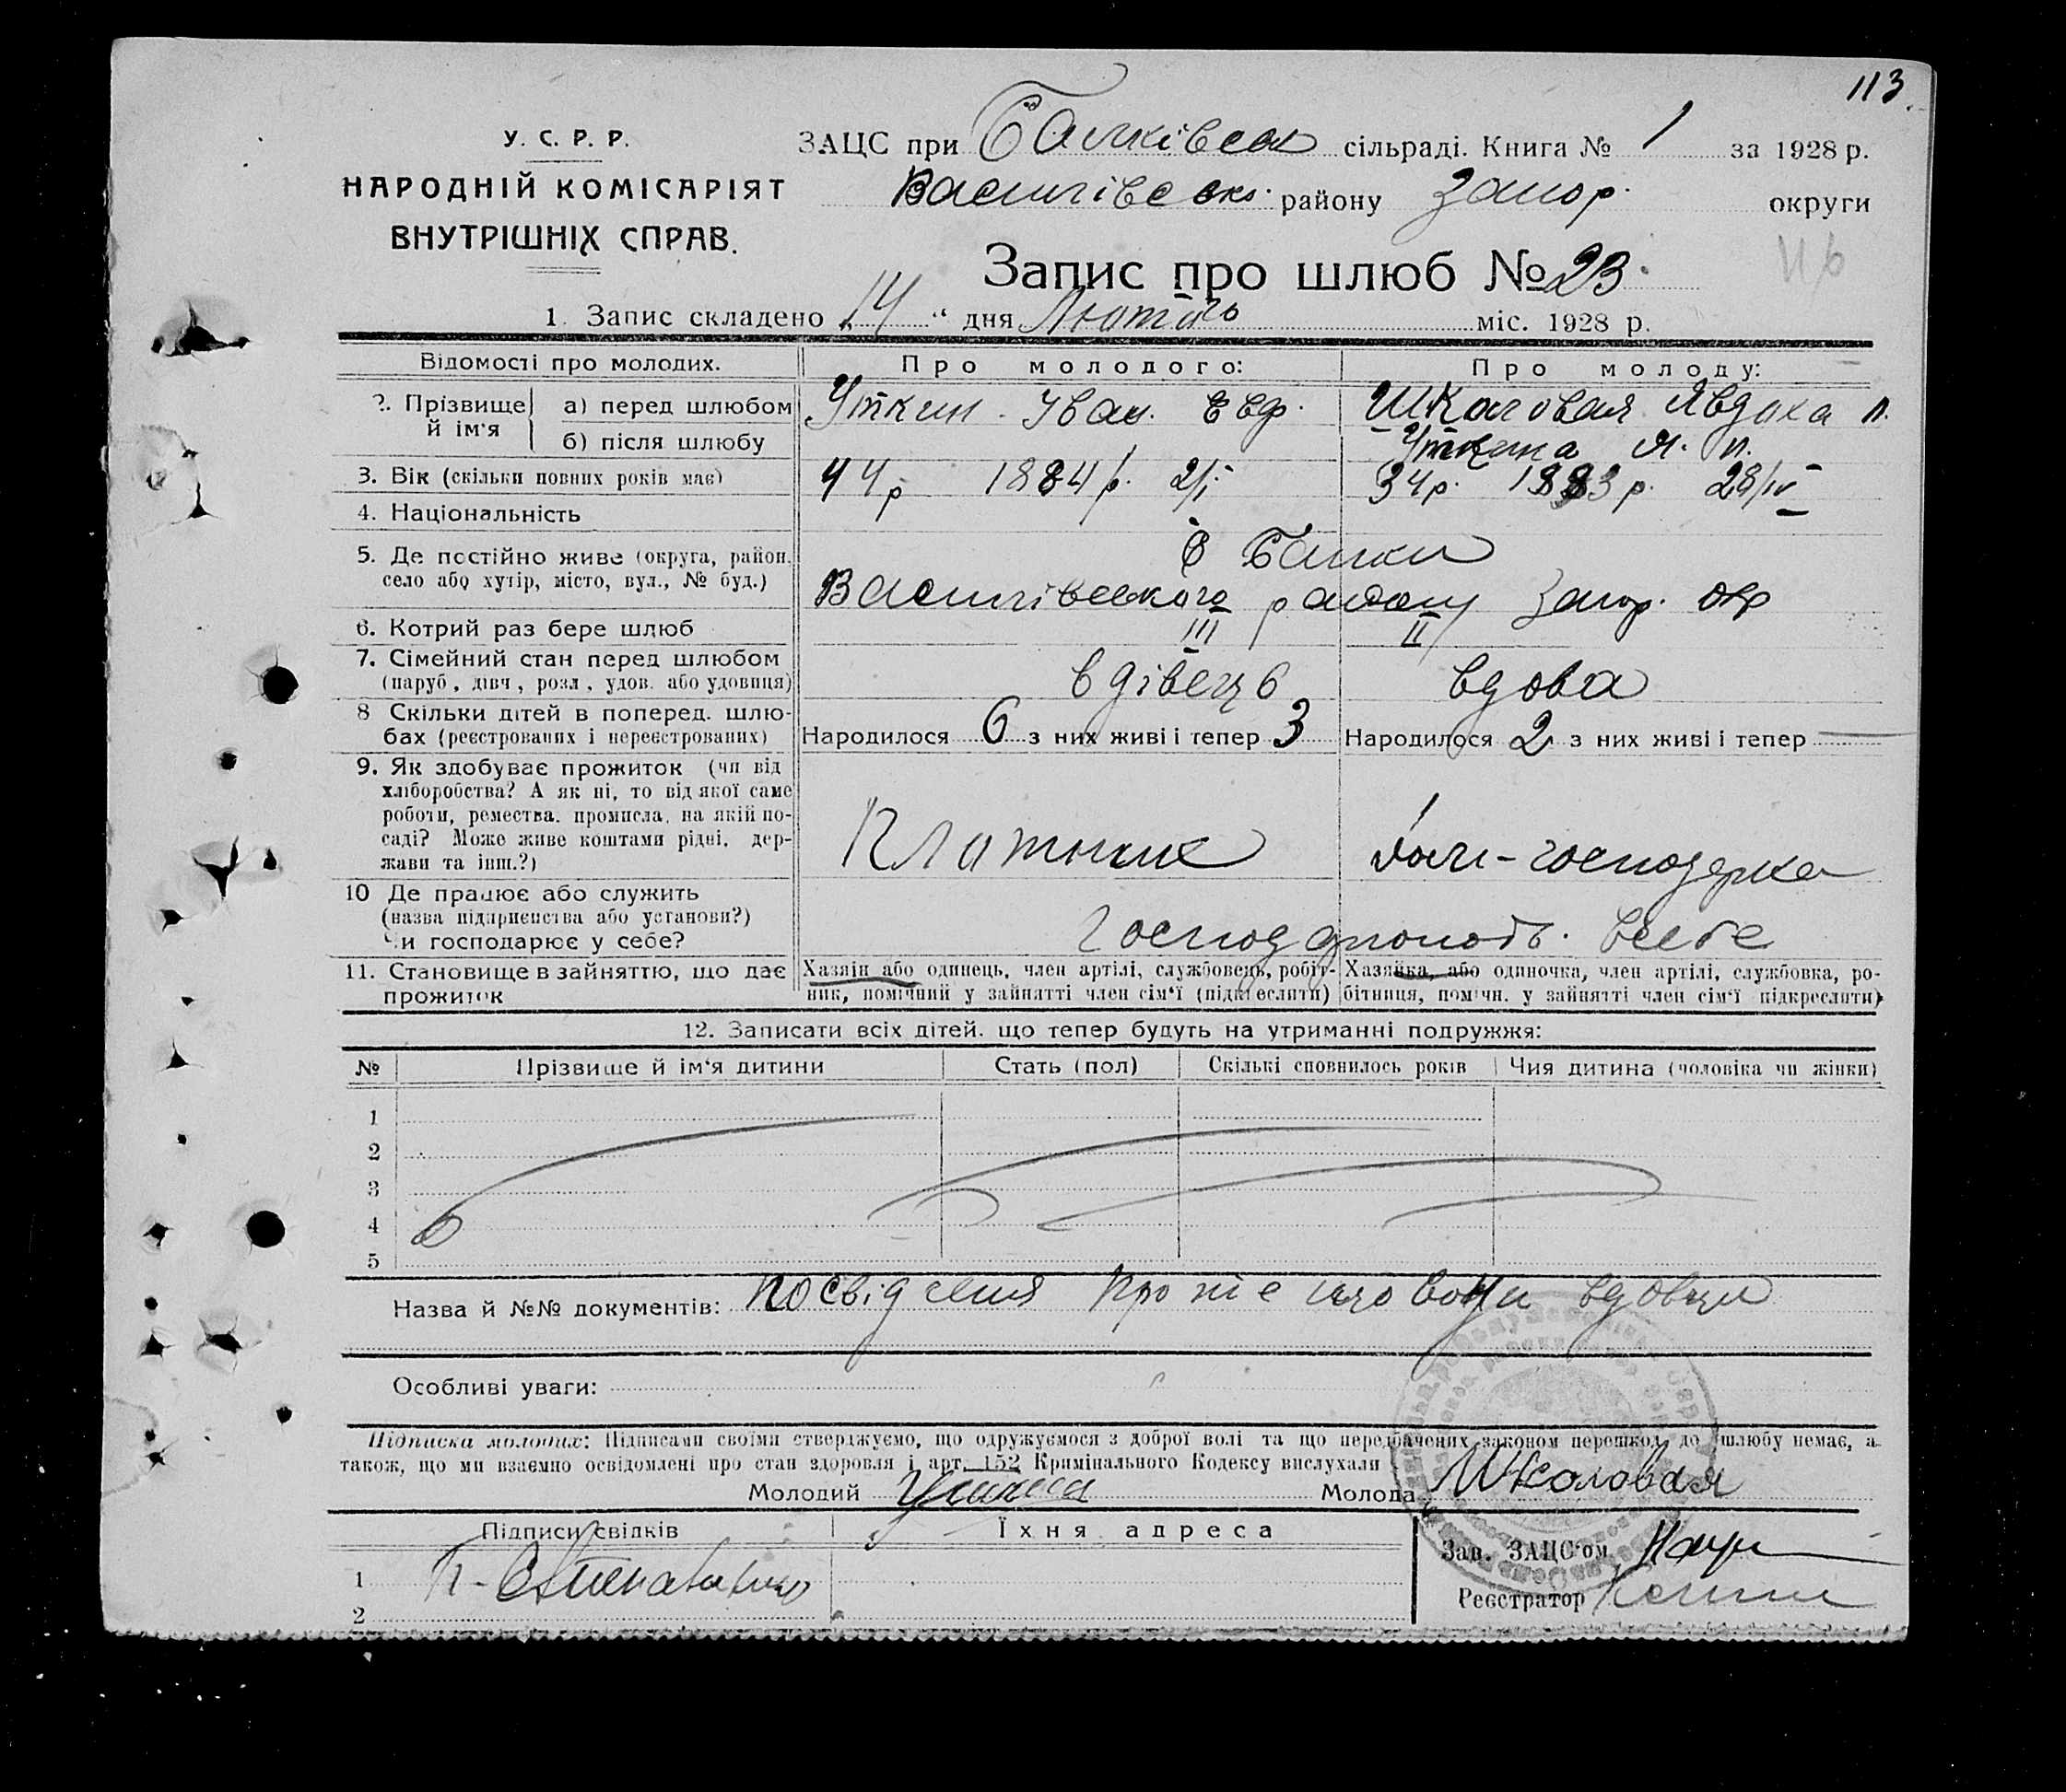 113.
У. С. Р. Р.
НАРОДНІЙ КОМІСАРІЯТ
ВНУТРІШНІХ СПРАВ.
ЗАЦС при Балківськ сільраді. Книга № 1 за 1928 р.
Василівсько району Запор. округи
Запис про шлюб № 23.
1. Запис складено „14“ дня Лютаго міс. 1928 р.
Відомості про молодих. Про молодого: Про молоду:
2. Прізвище й ім'я
а) перед шлюбом Уткин Іван Евф. Шкаловая Явдоха П.
б) після шлюбу Уткина Я. П.
3. Вік (скільки повних років має) 44 р 1884 р. 2/I 34 р. 1883 р. 28/IV
4. Національність
5. Де постійно живе (округа, район, село або хутір, місто, вул., № буд.)
с Балки
Василівського району Запор. окр
6. Котрий раз бере шлюб III II
7. Сімейний стан перед шлюбом (паруб., дівч., розл., удов. або удовиця) вдівець вдова
8 Скільки дітей в поперед. шлюбах (реєстрованих і нереєстрованих)
Народилося 6 з них живі і тепер 3 Народилося 2 з них живі і тепер —
9. Як здобуває прожиток (чи від
хліборобства? А як ні, то від якої саме
роботи, ремества, промисла, на якій посаді? Може живе коштами рідні, держави та інш.?)
Плотник дом-господарка
10 Де працює або служить
(назва підприємства або установи?)
Чи господарює у себе?
11. Становище в зайняттю, що дає прожиток
Хазяїн або одинець, член артілі, службовець, робітник, помічний у зайнятті член сім'ї (підкреслити)
Хазяйка, або одиночка, член артілі, службовка, робітниця, помічн. у зайнятті член сім'ї підкреслити)
12. Записати всіх дітей, що тепер будуть на утриманні подружжя:
№ Прізвище й ім'я дитини Стать (пол) Скількі сповнилось років Чия дитина (чоловіка чи жінки)
1
2
3
4
5
Назва й №№ документів: Посвідчення про те що вони вдовци
Особливі уваги:
Підписка молодих: Підписами своїми стверджуємо, що одружуємося з доброї волі та що передбачених законом перешкод до шлюбу немає, а
також, що ми взаємно освідомлені про стан здоровля і арт. 152 Кримінального Кодексу вислухали
Молодий Молода Шкаловая
Підписи свідків Їхня адреса
Зав. ЗАЦС'ом
1
Реєстратор
2